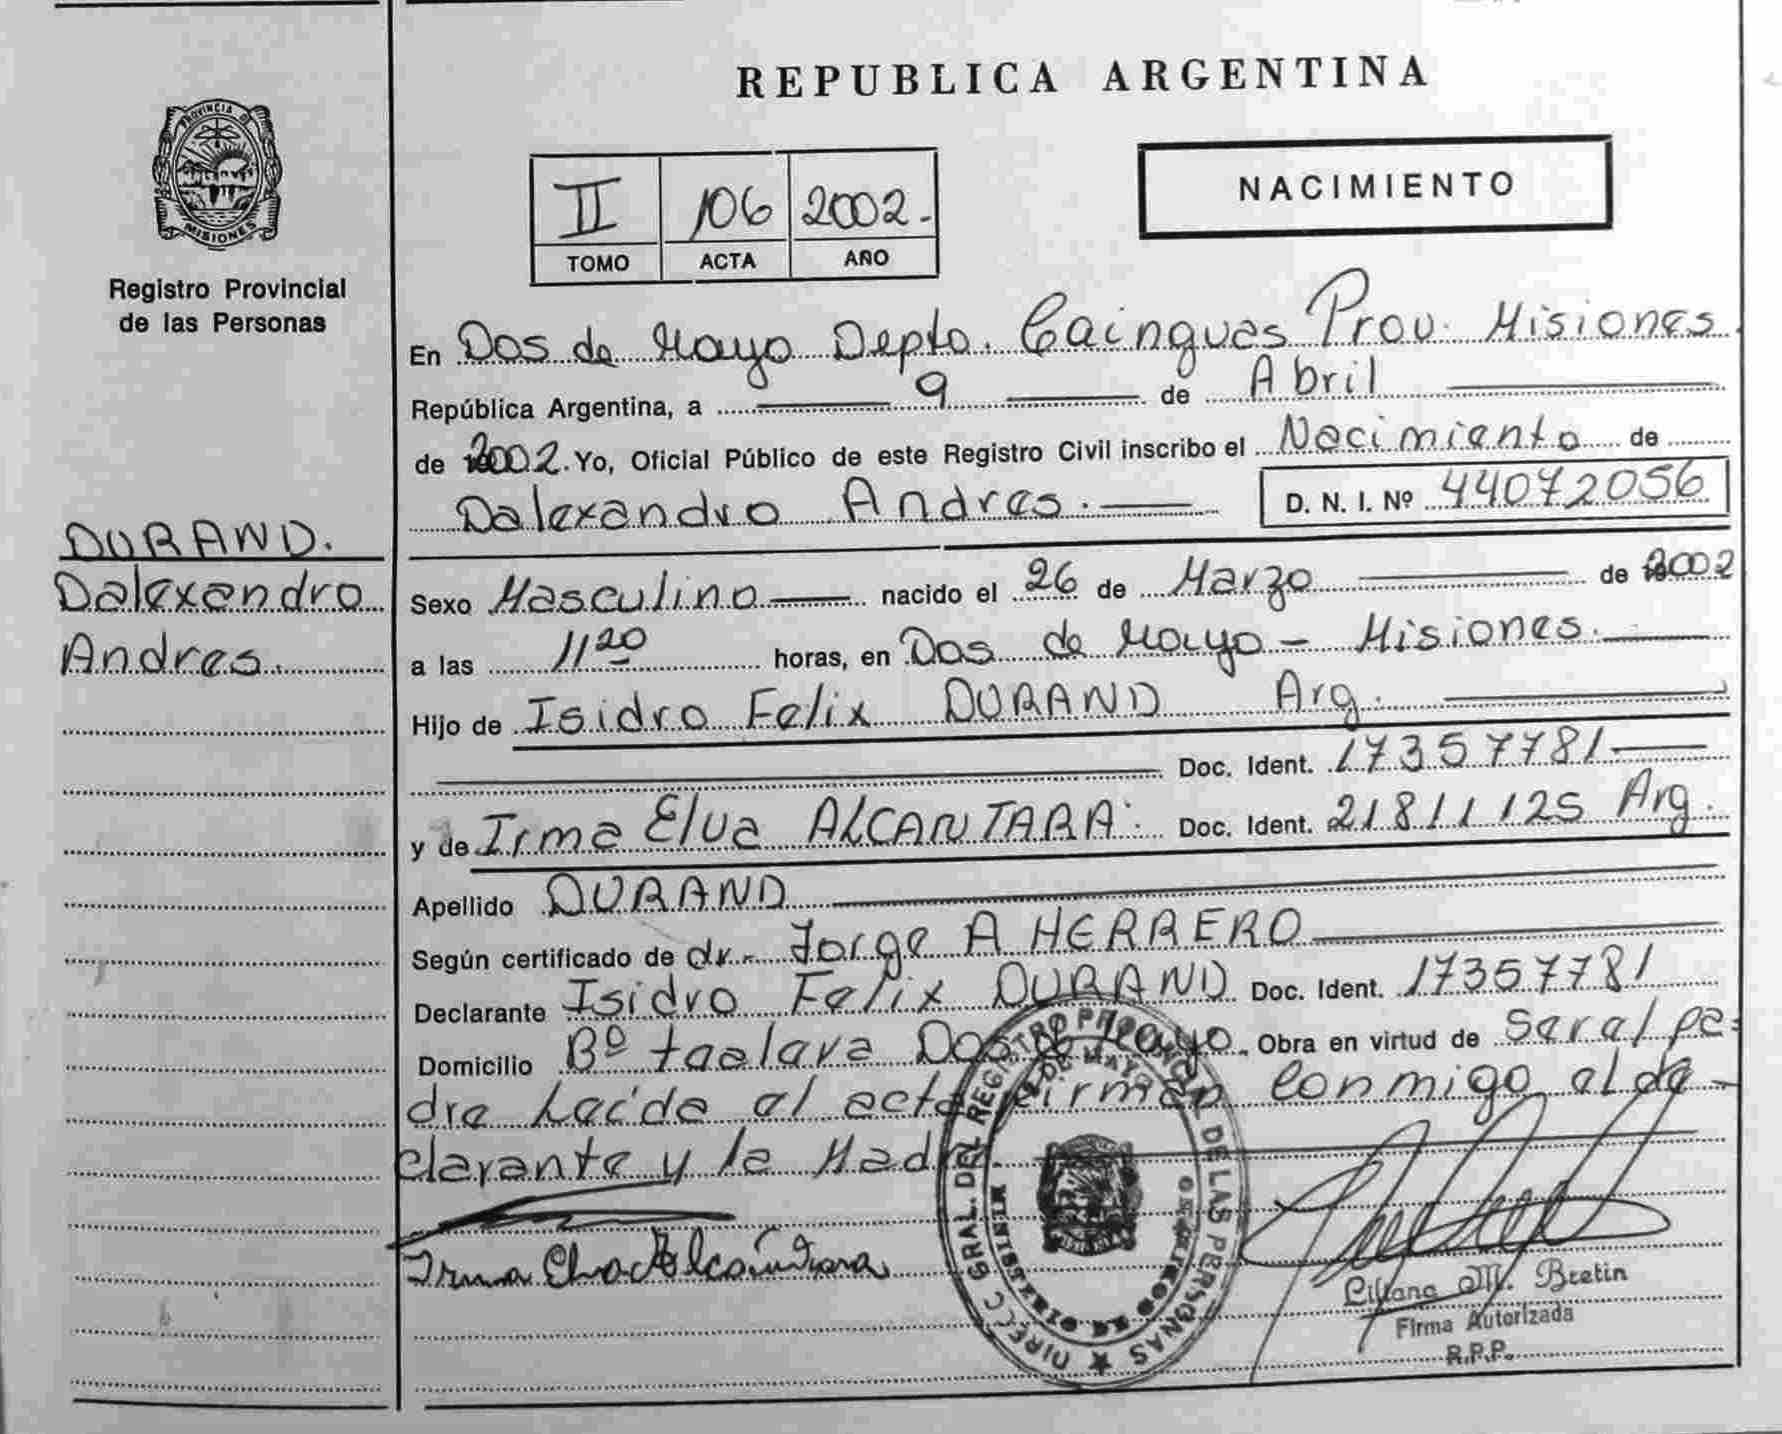 REPUBLICA ARGENTINA
PROVINCIA DE
MISIONES
Registro Provincial
de las Personas
NACIMIENTO
II 106 2002.
TOMO ACTA AÑO
En Dos de Mayo Depto. Cainguas Prov. Misiones.
República Argentina, a 9 de Abril
de 2002. Yo, Oficial Público de este Registro Civil inscribo el Nacimiento de
Dalexandro Andres. D. N. I. Nº 44072056
DURAND.
Dalexandro
Andres.
Sexo Masculino nacido el 26 de Marzo de 2002
a las 11 20 horas, en Dos de Mayo - Misiones.
Hijo de Isidro Felix DURAND Arg.
Doc. Ident. 17357781
y de Irma Elva ALCANTARA. Doc. Ident. 21811125 Arg.
Apellido DURAND
Según certificado de dr. Jorge A HERRERO
Declarante Isidro Felix DURAND Doc. Ident. 17357781
Domicilio Bº Dos de Mayo. Obra en virtud de Ser al pa-
dre Leída el acta firman conmigo el de-
clarante y la Madre.
Irma Elva Alcantara
DIRECC GRAL. DEL REGISTRO PROVINCIAL DE LAS PERSONAS
Liliana M. Bretin
Firma Autorizada
R.P.P.